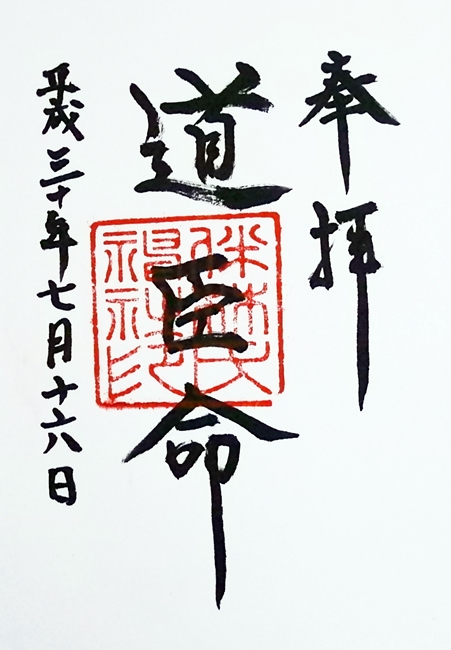 奉拝
道臣命
平成三十年七月十六日